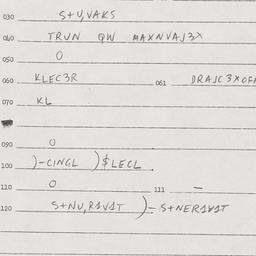 030 S+U,VAKS
040 TRUN QW MAXNVAJ3X
050 O
060 KLEC3R 061 DRAJC3XOFA
070 KL
090 O
100 )-CINGL )$LECL
110 O 111 —
120 S+NU,R1V1T )-S+NER1V1T